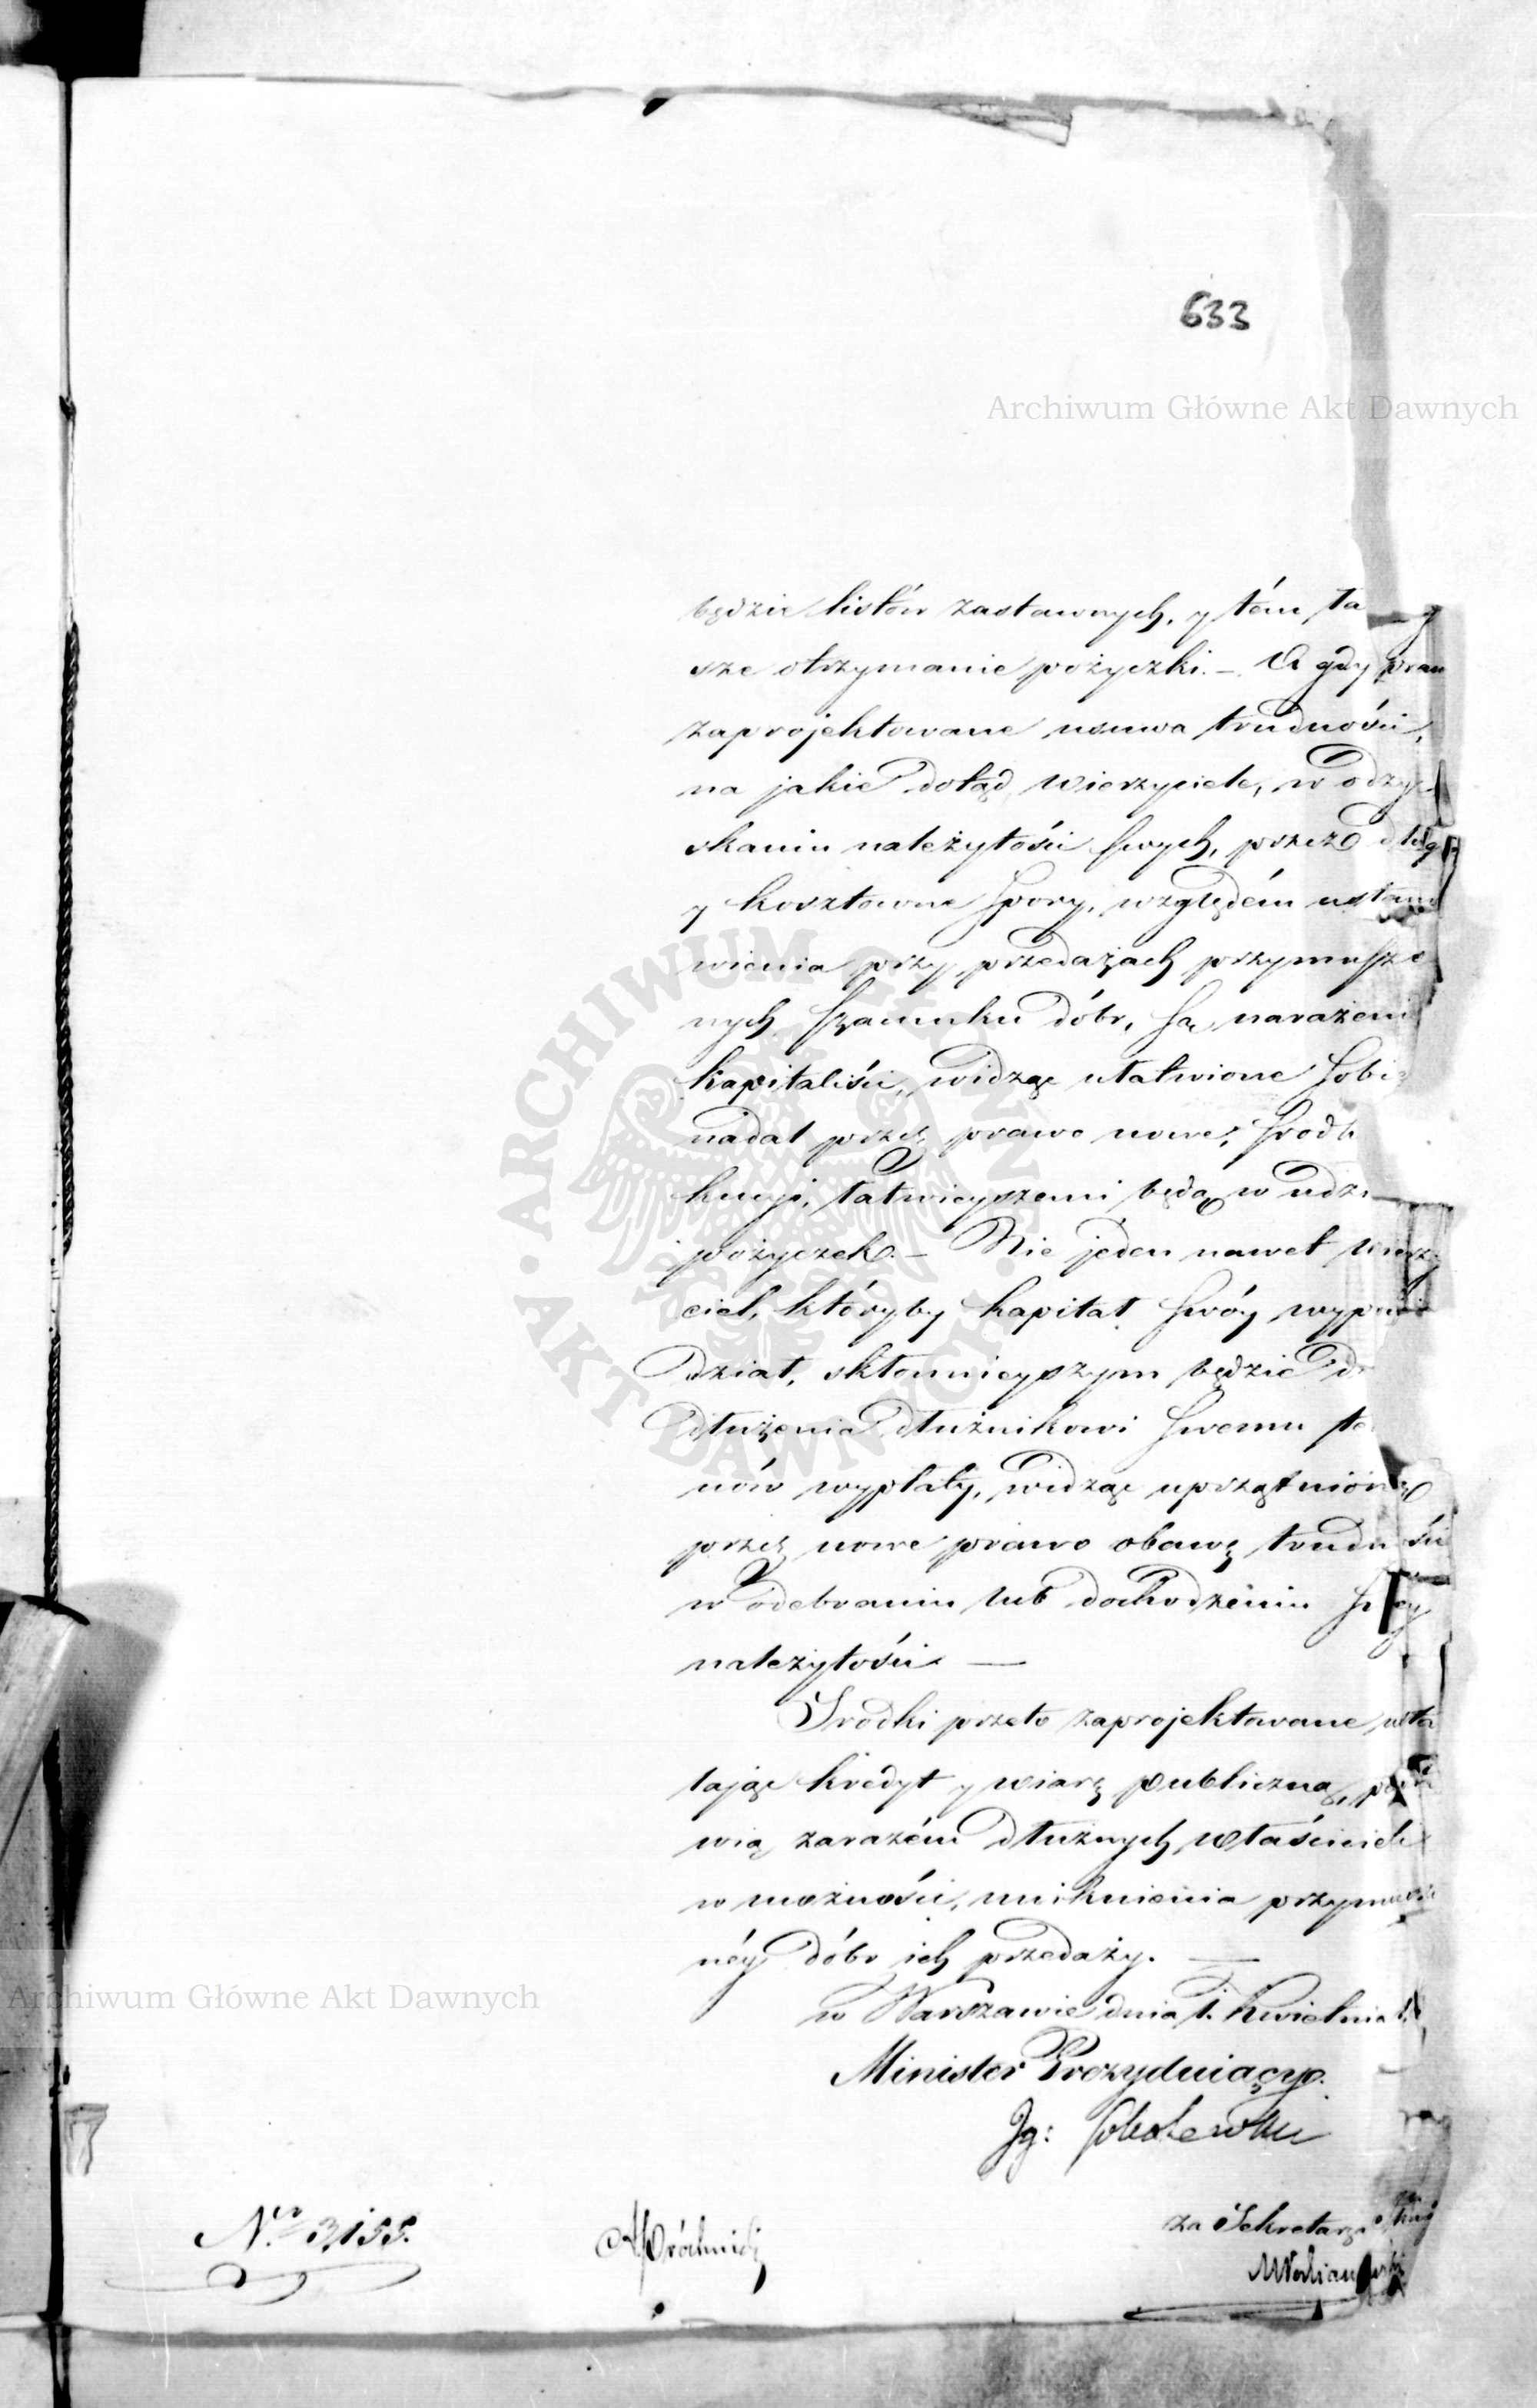 633
Archiwum Główne Akt Dawnych
będzie listów zastawnych, y tém ła
sze otrzymanie pożyczki. – A gdy praw
zaprojektowane usuwa trudności,
na jakie dotąd wierzyciele, w odzy
skaniu należytości swych, przez dług
y kosztowne spory, względém ustano
wienia przy przedażach przymusżo
nych szacunku dóbr, są narażeni
kapitaliści, widząc ułatwione sobi
nadal przez prawo nowe, srodk
kucyi, łatwieyszemi będą w udzi
pożyczek. – Nie jeden nawet wierzy
ciel, któryby kapitał swóy wypowie
dział, skłonnieyszym będzie do
dłużenia dłużnikowi swemu te
nów wypłaty, widząc uprzątnioną
przez nowe prawo obawę trudności
w odebraniu lub dochodzeniu swey
należytości —
Srodki przeto zaprojektowane usta
lając kredyt y wiarę publiczną, posta
wią zarazém dłużnych właścicieli
w możności, uniknienia przymuszo
néy dóbr ich przedaży. —
w Warszawie dnia 1. kwietnia
Minister Prezyduiący.
Jg: Sobolewski
za Sekretarza
Nro 3,155.
ARCHIWUM GŁÓWNE AKT DAWNYCH
Archiwum Główne Akt Dawnych